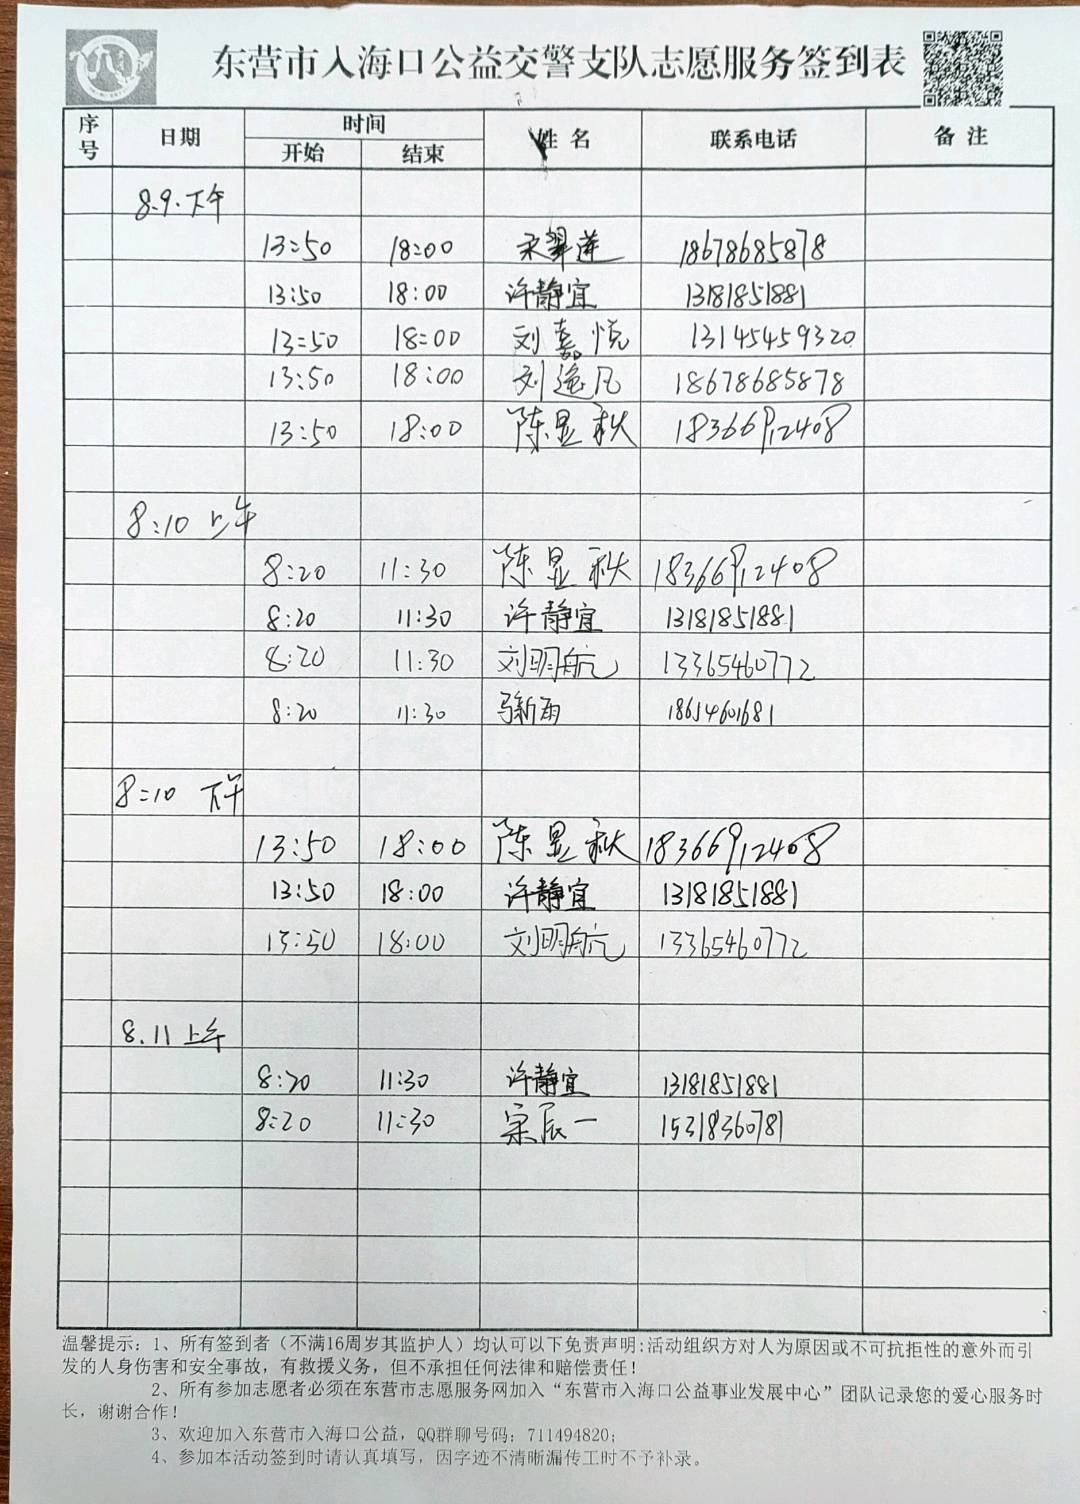 东营市入海口公益交警支队志愿服务签到表
序号 日期 时间 姓名 联系电话 备注
开始 结束
8.9.下午
13:50 18:00 翠莲 18678685878
13:50 18:00 许静宜 13181851881
13:50 18:00 刘嘉悦 13145459320
13:50 18:00 刘逸凡 18678685878
13:50 18:00 陈显秋 18366912408
8:10 上午
8:20 11:30 陈显秋 18366912408
8:20 11:30 许静宜 13181851881
8:20 11:30 刘明航 13365460772
8:20 11:30 新雨 18654601681
8:10 下午
13:50 18:00 陈显秋 18366912408
13:50 18:00 许静宜 13181851881
13:50 18:00 刘明航 13365460772
8.11上午
8:20 11:30 许静宜 13181851881
8:20 11:30 宗辰一 15318360781
温馨提示：1、所有签到者（不满16周岁其监护人）均认可以下免责声明:活动组织方对人为原因或不可抗拒性的意外而引
发的人身伤害和安全事故，有救援义务，但不承担任何法律和赔偿责任！
2、所有参加志愿者必须在东营市志愿服务网加入“东营市入海口公益事业发展中心”团队记录您的爱心服务时
长，谢谢合作！
3、欢迎加入东营市入海口公益，QQ群聊号码：711494820;
4、参加本活动签到时请认真填写，因字迹不清晰漏传工时不予补录。